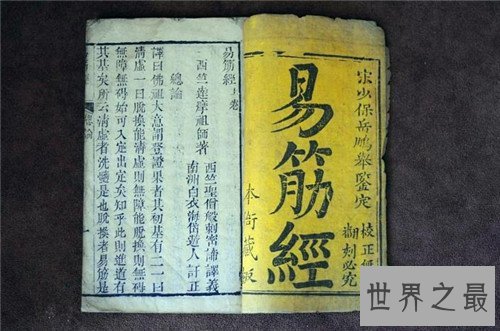 宋少保岳鵬舉鑒定
校正無
翻刻必究
易筋經
本衙藏板
易筋經上卷
西竺達摩祖師著
西竺聖僧般剌密諦譯義
南洲白衣海岱遊人訂正
總論
譯曰佛祖大意謂登證果者其初基有二一曰
清虛一曰脫換能清虛則無障能脫換則無碍
無障無碍始可入定出定矣知乎此則進道有
其基矣所云清虛者洗髓是也脫換者易筋是
總論
世界之最